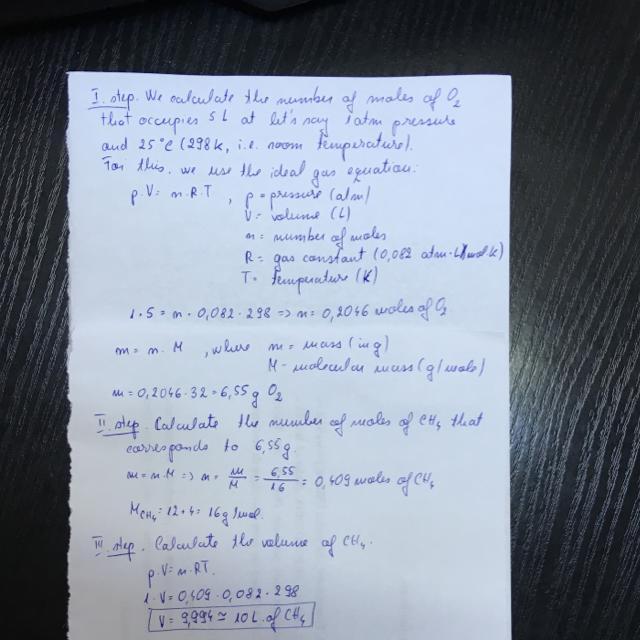 I. step. We calculate the number of moles of O2
that occupies 5 L at let's say 1 atm pressure
and 25°C (298K, i.e. room temperature).
For this, we use the ideal gas equation:
p.V = n.R.T , p = pressure (atm)
V = volume (L)
n = number of moles
R = gas constant (0,082 atm.L/mol.K)
T = temperature (K)
1.5 = n.0,082.298 => n = 0,2046 moles of O2
m = n.M , where m = mass (in g)
M - molecular mass (g/mole)
m = 0,2046.32 = 6,55 g O2
II step. Calculate the number of moles of CH4 that
corresponds to 6,55g.
m = n.M => n = m/M = 6,55/16 = 0,409 moles of CH4
MCH4 = 12+4 = 16g/mol.
III. step. Calculate the volume of CH4.
p.V = n.RT.
1.V = 0,409.0,082.298
V = 9,994 ≃ 10 L. of CH4